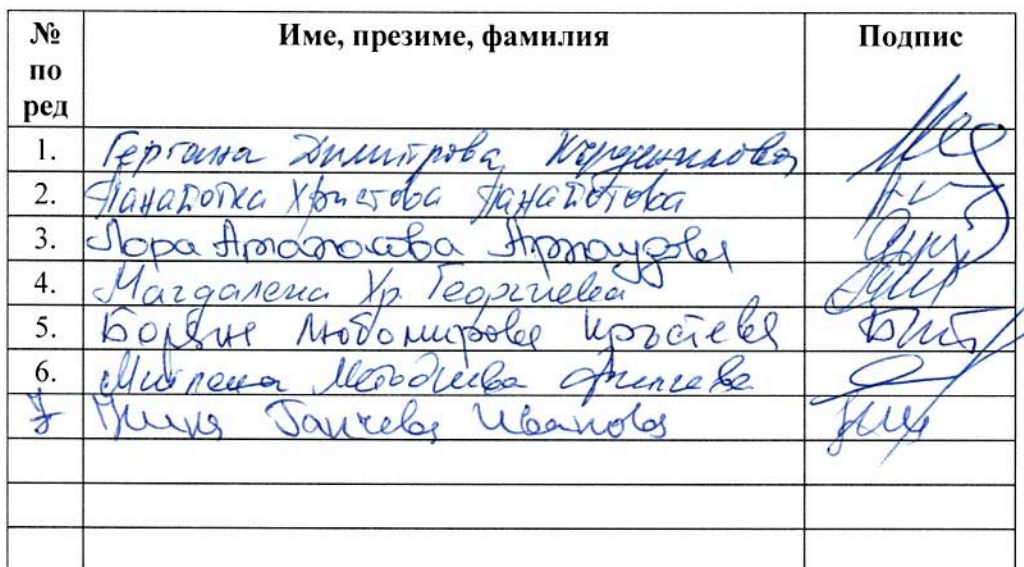 № по ред Име, презиме, фамилия Подпис
1. Гергана Димитрова
2. Панайотка Христова Панайотова
3. Лора Атанасова Арнаудова
4. Магдалена Хр. Георгиева
5. Боряна Любомирова Кръстева
6. Милена Методиева
7 Ганчева Иванова